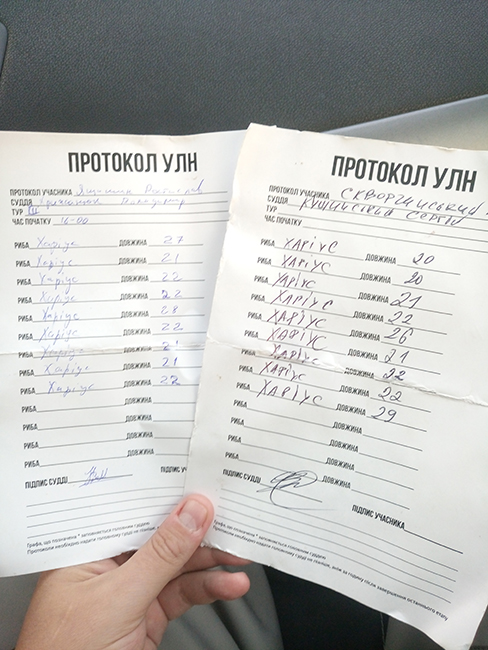 ПРОТОКОЛ УЛН
ПРОТОКОЛ УЧАСНИКА
СУДДЯ
ТУР III
ЧАС ПОЧАТКУ 16-00
РИБА Харіус ДОВЖИНА 27
РИБА Харіус ДОВЖИНА 21
РИБА Харіус ДОВЖИНА 22
РИБА Харіус ДОВЖИНА 22
РИБА Харіус ДОВЖИНА 28
РИБА Харіус ДОВЖИНА 22
РИБА Харіус ДОВЖИНА 21
РИБА Харіус ДОВЖИНА 21
РИБА Харіус ДОВЖИНА 22
РИБА ДОВЖИНА
РИБА ДОВЖИНА
РИБА ДОВЖИНА
РИБА ДОВЖИНА
ПІДПИС СУДДІ ПІДПИС УЧ
Графи, що позначена * заповнюється головним суддею
Протоколи необхідно надати головному судді
ПРОТОКОЛ УЛН
ПРОТОКОЛ УЧАСНИКА СКВОРЧИНСЬКИЙ
СУДДЯ СЕРГІЙ
ТУР
ЧАС ПОЧАТКУ
РИБА ХАРІУС ДОВЖИНА 20
РИБА ХАРІУС ДОВЖИНА 20
РИБА ХАРІУС ДОВЖИНА 21
РИБА ХАРІУС ДОВЖИНА 22
РИБА ХАРІУС ДОВЖИНА 26
РИБА ХАРІУС ДОВЖИНА 21
РИБА ХАРІУС ДОВЖИНА 22
РИБА ХАРІУС ДОВЖИНА 22
РИБА ХАРІУС ДОВЖИНА 29
РИБА ДОВЖИНА
РИБА ДОВЖИНА
РИБА ДОВЖИНА
РИБА ДОВЖИНА
ПІДПИС СУДДІ ПІДПИС УЧАСНИКА
Графа, що позначена * заповнюється головним суддею
Протоколи необхідно надати головному судді не пізніше, ніж за годину після завершення останнього етапу